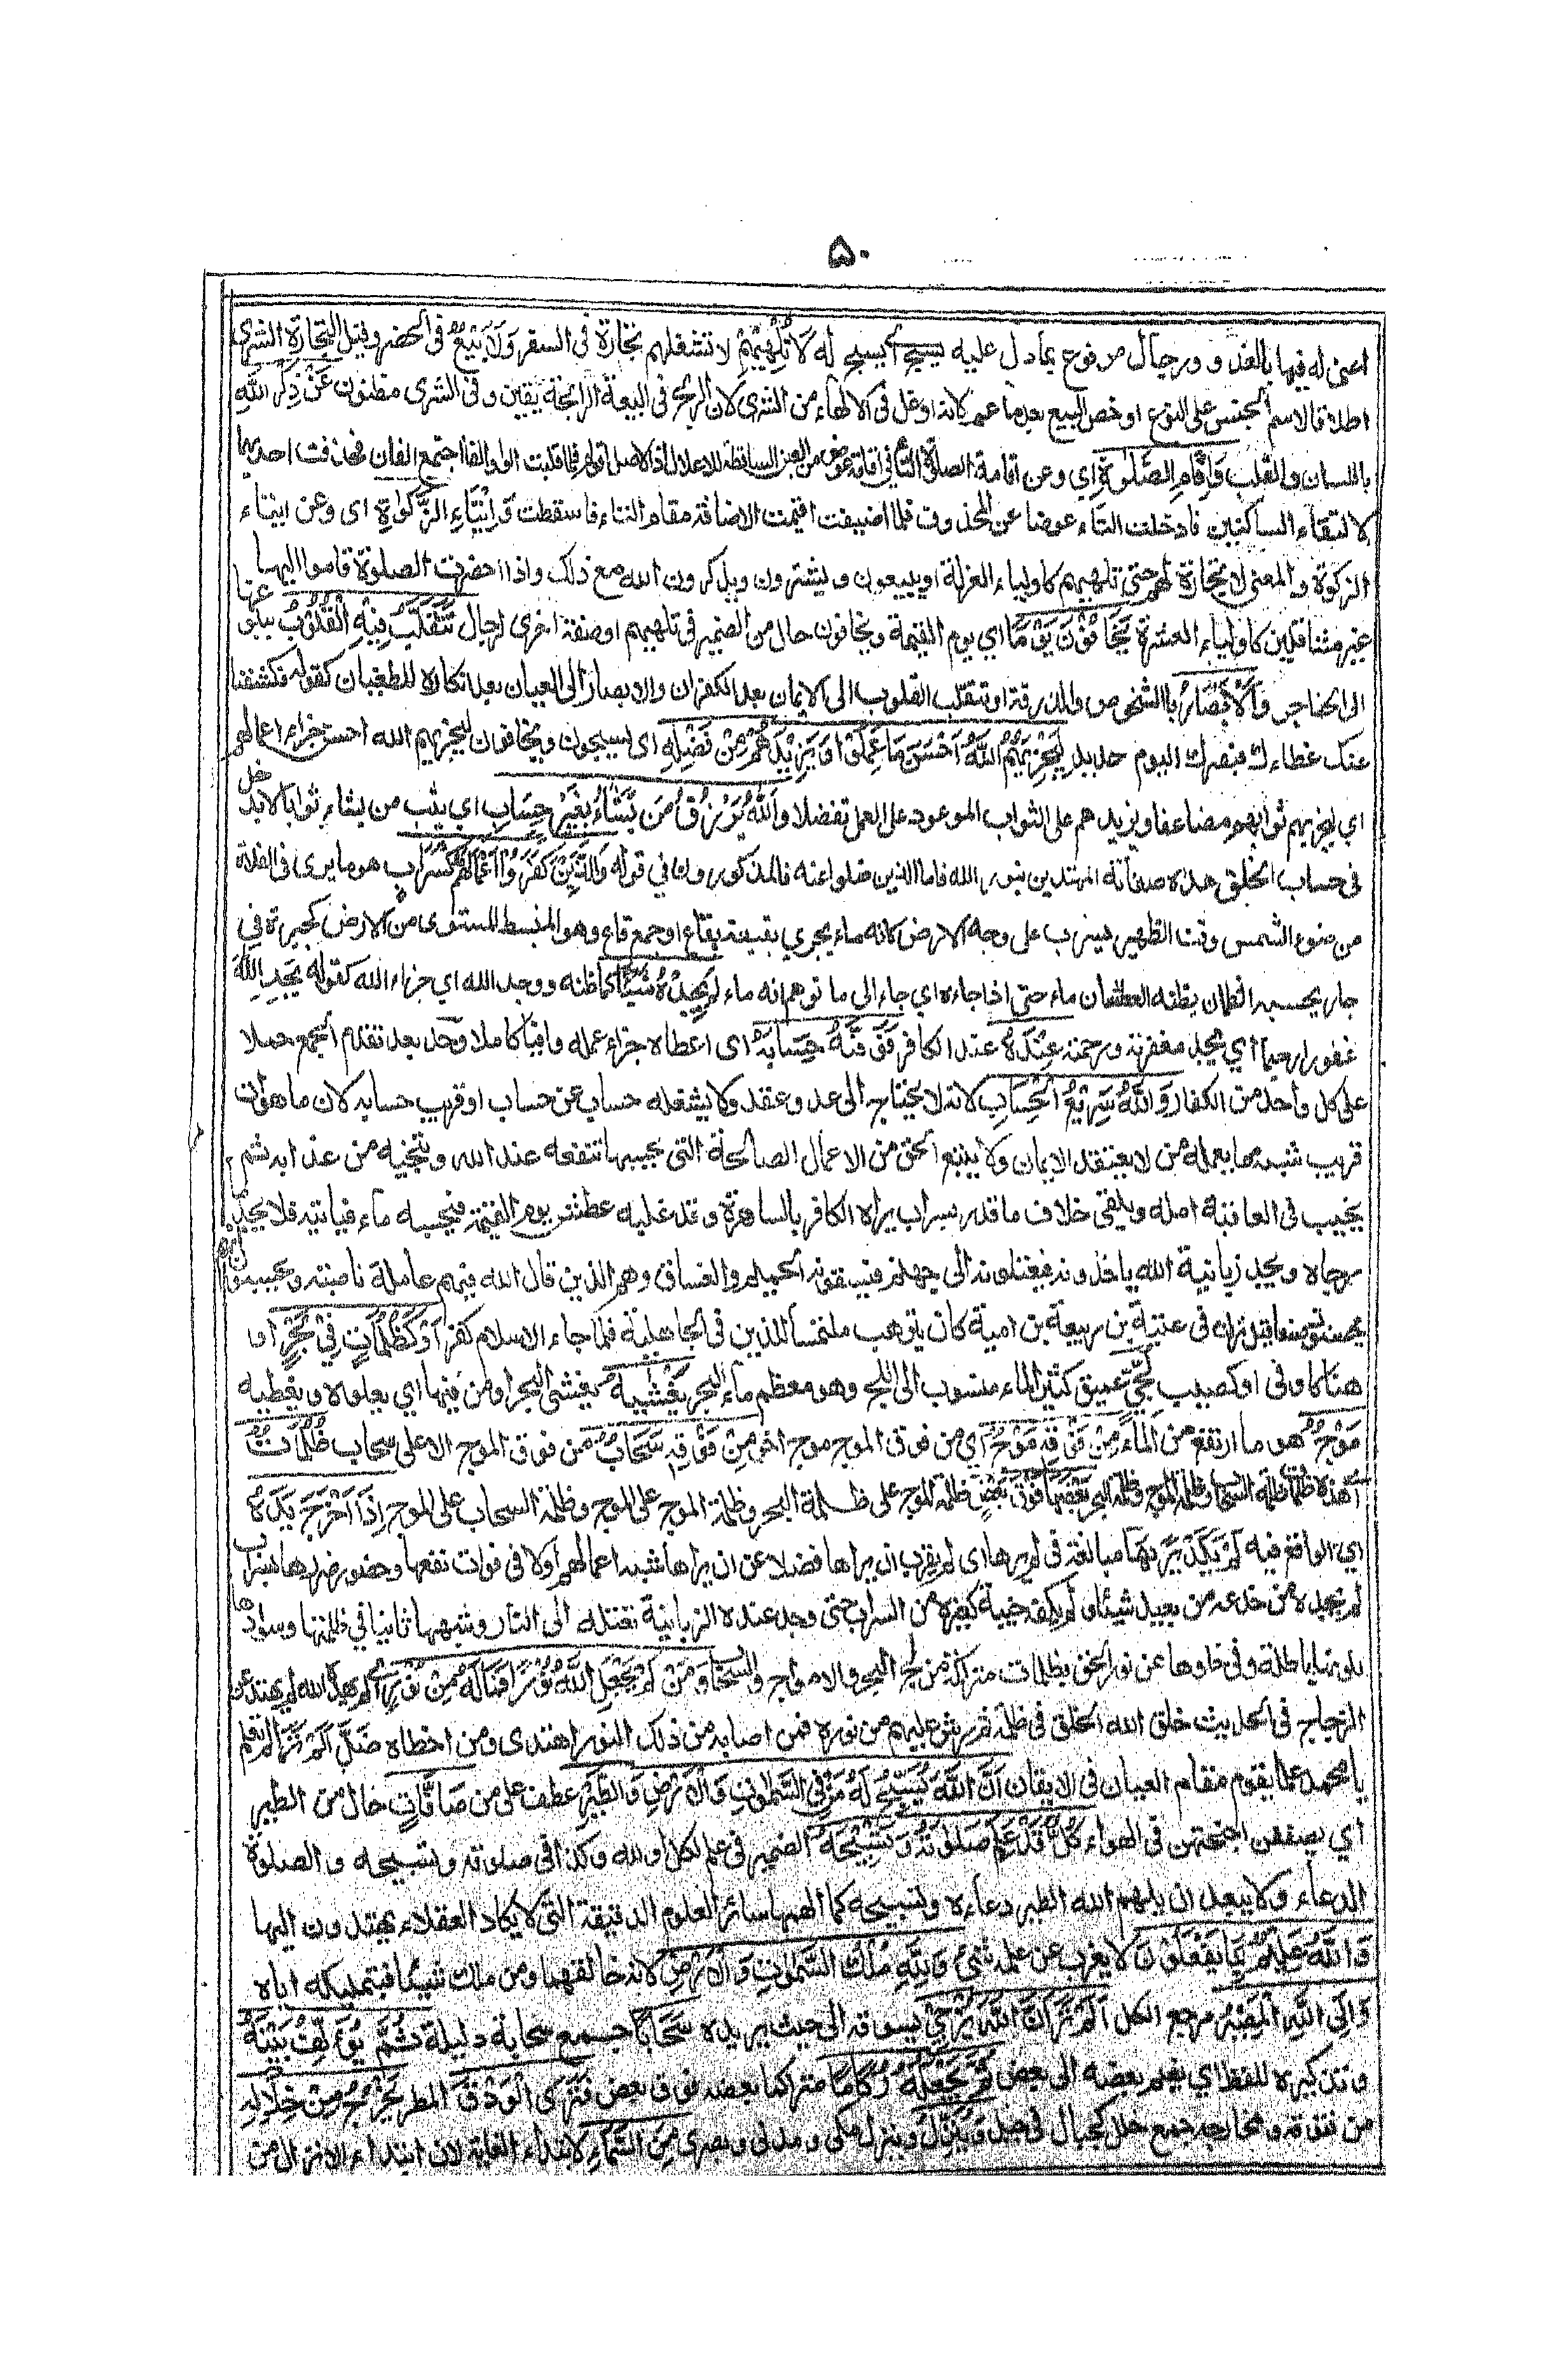 ۵۰
اعنى له فيها بالغدو ورجال مرفوع بمادل عليه يسبح أي يسبح له لَا تُلْهِيْهِمْ لا تشغلهم تِجَارَةٌ فى السفر وَلَا بَيْعٌ فى الحضر وقيل التجارة الشرى
اطلاقا لاسم الجنس على النوع او خص البيع بعد ما عم لانه اوغل فى الالهاء من الشرى لان الربح فى البيعة الرابحة يقين وفى الشرى مظنون عَنْ ذِكْرِ اللهِ
باللسان والقلب وَاِقَامِ الصَّلٰوةِ اي وعن اقامة الصلوة التاء فى اقامة عوض من العين الساقطة للاعلال اذ الاصل اقوام فلما قلبت الواو الفا اجتمع الفان فحذفت احديهما
لالتقاء الساكنين فادخلت التاء عوضا عن المحذوف فلما اضيفت اقيمت الاضافة مقام التاء فاسقطت وَاِيْتَاءِ الزَّكٰوةِ اى وعن ايتاء
الزكوة والمعنى لا تجارة لهم حتى تلهيهم كاولياء العزلة او يبيعون ويشترون ويذكرون الله مع ذلك واذا حضرت الصلوة قاموا اليها
غير متثاقلين كاولياء العشرة يَخَافُوْنَ يَوْمًا اي يوم القيمة ويخافون حال من الضمير فى تلهيهم او صفة اخرى لرجال تَتَقَلَّبُ فِيْهِ الْقُلُوْبُ ببلوغها
الى الحناجر وَالْاَبْصَارُ بالشخوص والزرقة او تتقلب القلوب الى الايمان بعد الكفران والابصار الى العيان بعد انكاره للطغيان كقوله فكشفنا
عنك غطاءك فبصرك اليوم حديد لِيَجْزِيَهُمُ اللهُ اَحْسَنَ مَا عَمِلُوْا وَيَزِيْدَهُمْ مِنْ فَضْلِهِ اى يسبحون ويخافون ليجزيهم الله احسن جزاء اعمالهم
اي ليجزيهم ثوابهم مضاعفا ويزيدهم على الثواب الموعود على العمل تفضلا وَاللهُ يَرْزُقُ مَنْ يَّشَاءُ بِغَيْرِ حِسَابٍ اي يثيب من يشاء ثوابا لا يدخل
فى حساب الخلق هذه صفات المهتدين بنور الله فاما الذين ضلوا عنه فالمذكورون في قوله وَالَّذِيْنَ كَفَرُوْا اَعْمَالُهُمْ كَسَرَابٍ هو ما يرى فى الفلاة
من ضوء الشمس وقت الظهر يسرب على وجه الارض كانه ماء يجري بقيعة بقاع او جمع قاع وهو المنبسط المستوى من الارض كجيرة في
جار يحسبه الظمان يظنه العطشان ماء حتى اذا جاءه اي جاء الى ما توهم انه ماء لَمْ يَجِدْهُ شَيْئًا كما ظنه ووجد الله اي جزاء الله كقوله يَجِدِ اللهَ
غفورا رحيما اي يجد مغفرته ورحمته عِنْدَهٗ عند الكافر فَوَفّٰهُ حِسَابَهٗ اى اعطاه جزاء عمله وافيا كاملا وحد بعد تقدم الجمع حملا
على كل واحد من الكفار وَاللهُ سَرِيْعُ الْحِسَابِ لانه لا يحتاج الى عد وعقد ولا يشغله حساب عن حساب او قريب حسابه لان ما هو آت
قريب شبه ما يعمله من لا يعتقد الايمان ولا يتبع الحق من الاعمال الصالحة التى يحسبها تنفعه عند الله وتنجيه من عذابه ثم
يخيب فى العاقبة امله ويلقى خلاف ما قدر بسراب يراه الكافر بالساهرة وقد غلبه عطش يوم القيمة فيحسبه ماء فياتيه فلا يجد
ما رجاه ويجد زبانية الله ياخذونه فيعتلونه الى جهنم فيسقونه الحميم والغساق وهم الذين قال الله فيهم عاملة ناصبة ويحسبون انهم
يحسنون صنعا قيل نزلت فى عتبة بن ربيعة بن امية كان يترهب ملتمسا للدين فى الجاهلية فلما جاء الاسلام كفر اَوْ كَظُلُمَاتٍ فِيْ بَحْرٍ او
هنا كاو فى او كصيب لُجِّيٍّ عميق كثير الماء منسوب الى اللج وهو معظم ماء البحر يَغْشٰيهُ يغشى البحر او من فيها اي يعلوه ويغطيه
مَوْجٌ هو ما ارتفع من الماء مِنْ فَوْقِهِ مَوْجٌ اي من فوق الموج موج اخر مِنْ فَوْقِهِ سَحَابٌ من فوق الموج الاعلى سحاب ظُلُمَاتٌ
اي هذه ظلمات ظلمة السحاب وظلمة الموج وظلمة البحر بَعْضُهَا فَوْقَ بَعْضٍ ظلمة الموج على ظلمة البحر وظلمة الموج على الموج وظلمة السحاب على الموج اِذَا اَخْرَجَ يَدَهٗ
اي الواقع فيه لَمْ يَكَدْ يَرٰىهَا مبالغة فى لم يرها اى لم يقرب ان يراها فضلا عن ان يراها شبه اعمالهم اولا فى فوات نفعها وحضور ضررها بسراب
لم يجده من خدعه من بعيد شيئا ولم يكفه خيبة كغيره من السراب حتى وجد عنده الزبانية تعتله الى النار وشبهها ثانيا في ظلمتها وسوادها
لكونها باطلة وفى خلوها عن نور الحق بظلمات متراكمة من لج البحر والامواج والسحاب وَمَنْ لَمْ يَجْعَلِ اللهُ لَهٗ نُوْرًا فَمَا لَهٗ مِنْ نُوْرٍ اي من لم يهده الله لم يهتد عن
الزجاج فى الحديث خلق الله الخلق فى ظلمة ثم رش عليهم من نوره فمن اصابه من ذلك النور اهتدى ومن اخطاه ضَلَّ اَلَمْ تَرَ الم تعلم
يا محمد علما يقوم مقام العيان فى الايقان اَنَّ اللهَ يُسَبِّحُ لَهٗ مَنْ فِى السَّمٰوٰتِ وَالْاَرْضِ وَالطَّيْرُ عطف على من صَافَّاتٍ حال من الطير
اي يصففن اجنحتهن فى الهواء كُلٌّ قَدْ عَلِمَ صَلٰوتَهٗ وَتَسْبِيْحَهٗ الضمير فى علم لكل او لله وكذا فى صلوته وتسبيحه والصلوة
الدعاء ولا يبعد ان يلهم الله الطير دعاءه وتسبيحه كما الهمها سائر العلوم الدقيقة التى لا يكاد العقلاء يهتدون اليها
وَاللهُ عَلِيْمٌ بِمَا يَفْعَلُوْنَ لا يعزب عن علمه شىء وَلِلّٰهِ مُلْكُ السَّمٰوٰتِ وَالْاَرْضِ لانه خالقهما ومن ملك شيئا فبتمليكه اياه
وَاِلَى اللهِ الْمَصِيْرُ مرجع الكل اَلَمْ تَرَ اَنَّ اللهَ يُزْجِيْ يسوقه الى حيث يريده سَحَابًا جمع سحابة دليله ثُمَّ يُؤَلِّفُ بَيْنَهٗ
وتذكيره للفظ اي يضم بعضه الى بعض ثُمَّ يَجْعَلُهٗ رُكَامًا متراكما بعضه فوق بعض فَتَرَى الْوَدْقَ المطر يَخْرُجُ مِنْ خِلَالِهِ
من فتوقه ومخارجه جمع خلل كجبال فى جبل وَيُنَزِّلُ وينزل مكى ومدنى وبصرى مِنَ السَّمَاءِ لابتداء الغاية لان ابتداء الانزال من